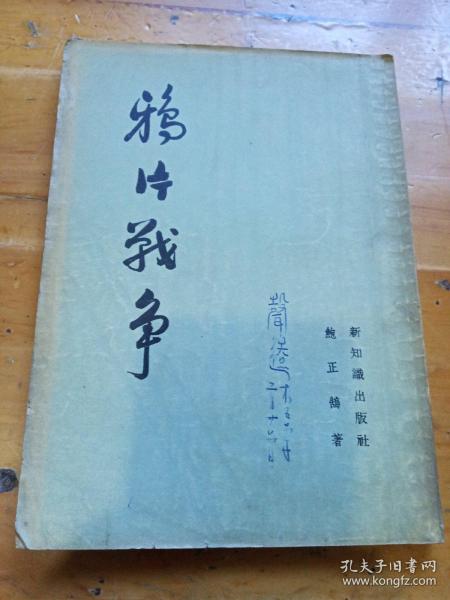 鴉片戰争
新知識出版社
鮑正鵠 著
孔夫子旧书网
www.kongfz.com